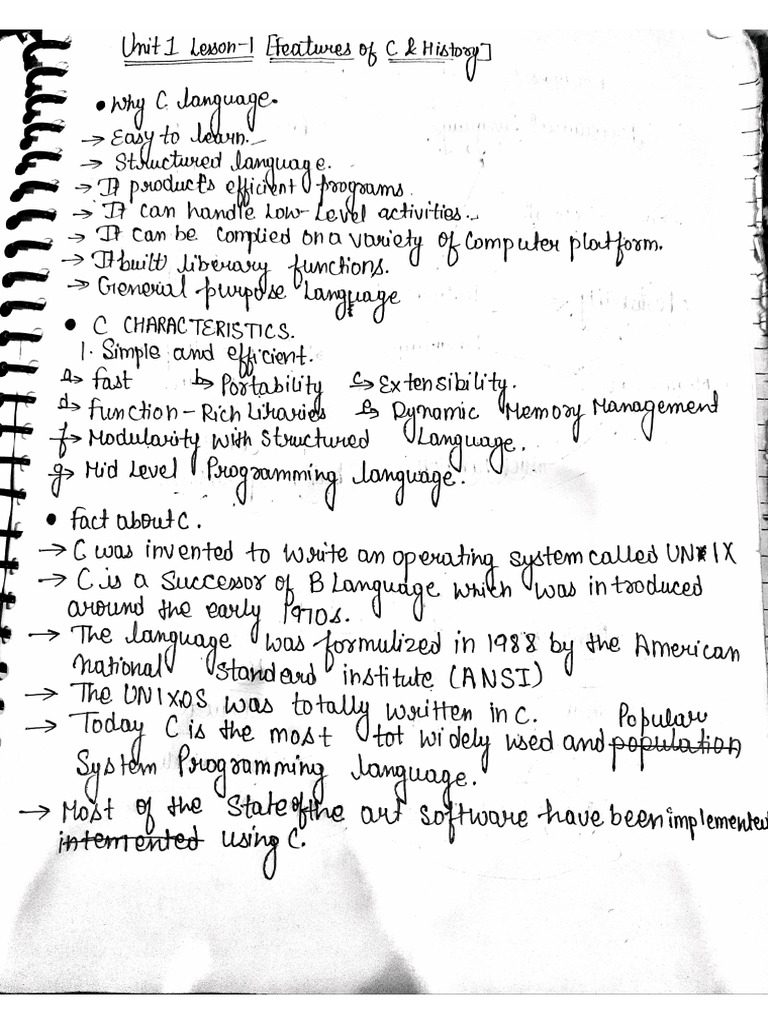 Unit 1 Lesson-1 [Features of C & History]
• Why C language.
→ Easy to learn.
→ Structured language.
→ It products efficient programs.
→ It can handle Low-Level activities.
→ It can be complied on a variety of Computer platform.
→ It built liberary functions.
→ General purpose Language
• C CHARACTERISTICS.
1. Simple and efficient.
a→ fast b→ Portability c→ Extensibility.
d→ function-Rich Libraries e→ Dynamic Memory Management
f→ Modularity with Structured Language.
g→ Mid Level Programming language.
• fact about C.
→ C was invented to write an operating system called UNIX
→ C is a Successor of B Language which was introduced
around the early 1970s.
→ The language was formulized in 1988 by the American
National Standard institute (ANSI)
→ The UNIXOS was totally written in C.
→ Today C is the most tot widely used and population Popular
System Programming language.
→ Most of the State of the art software have been implemented
intemented using C.